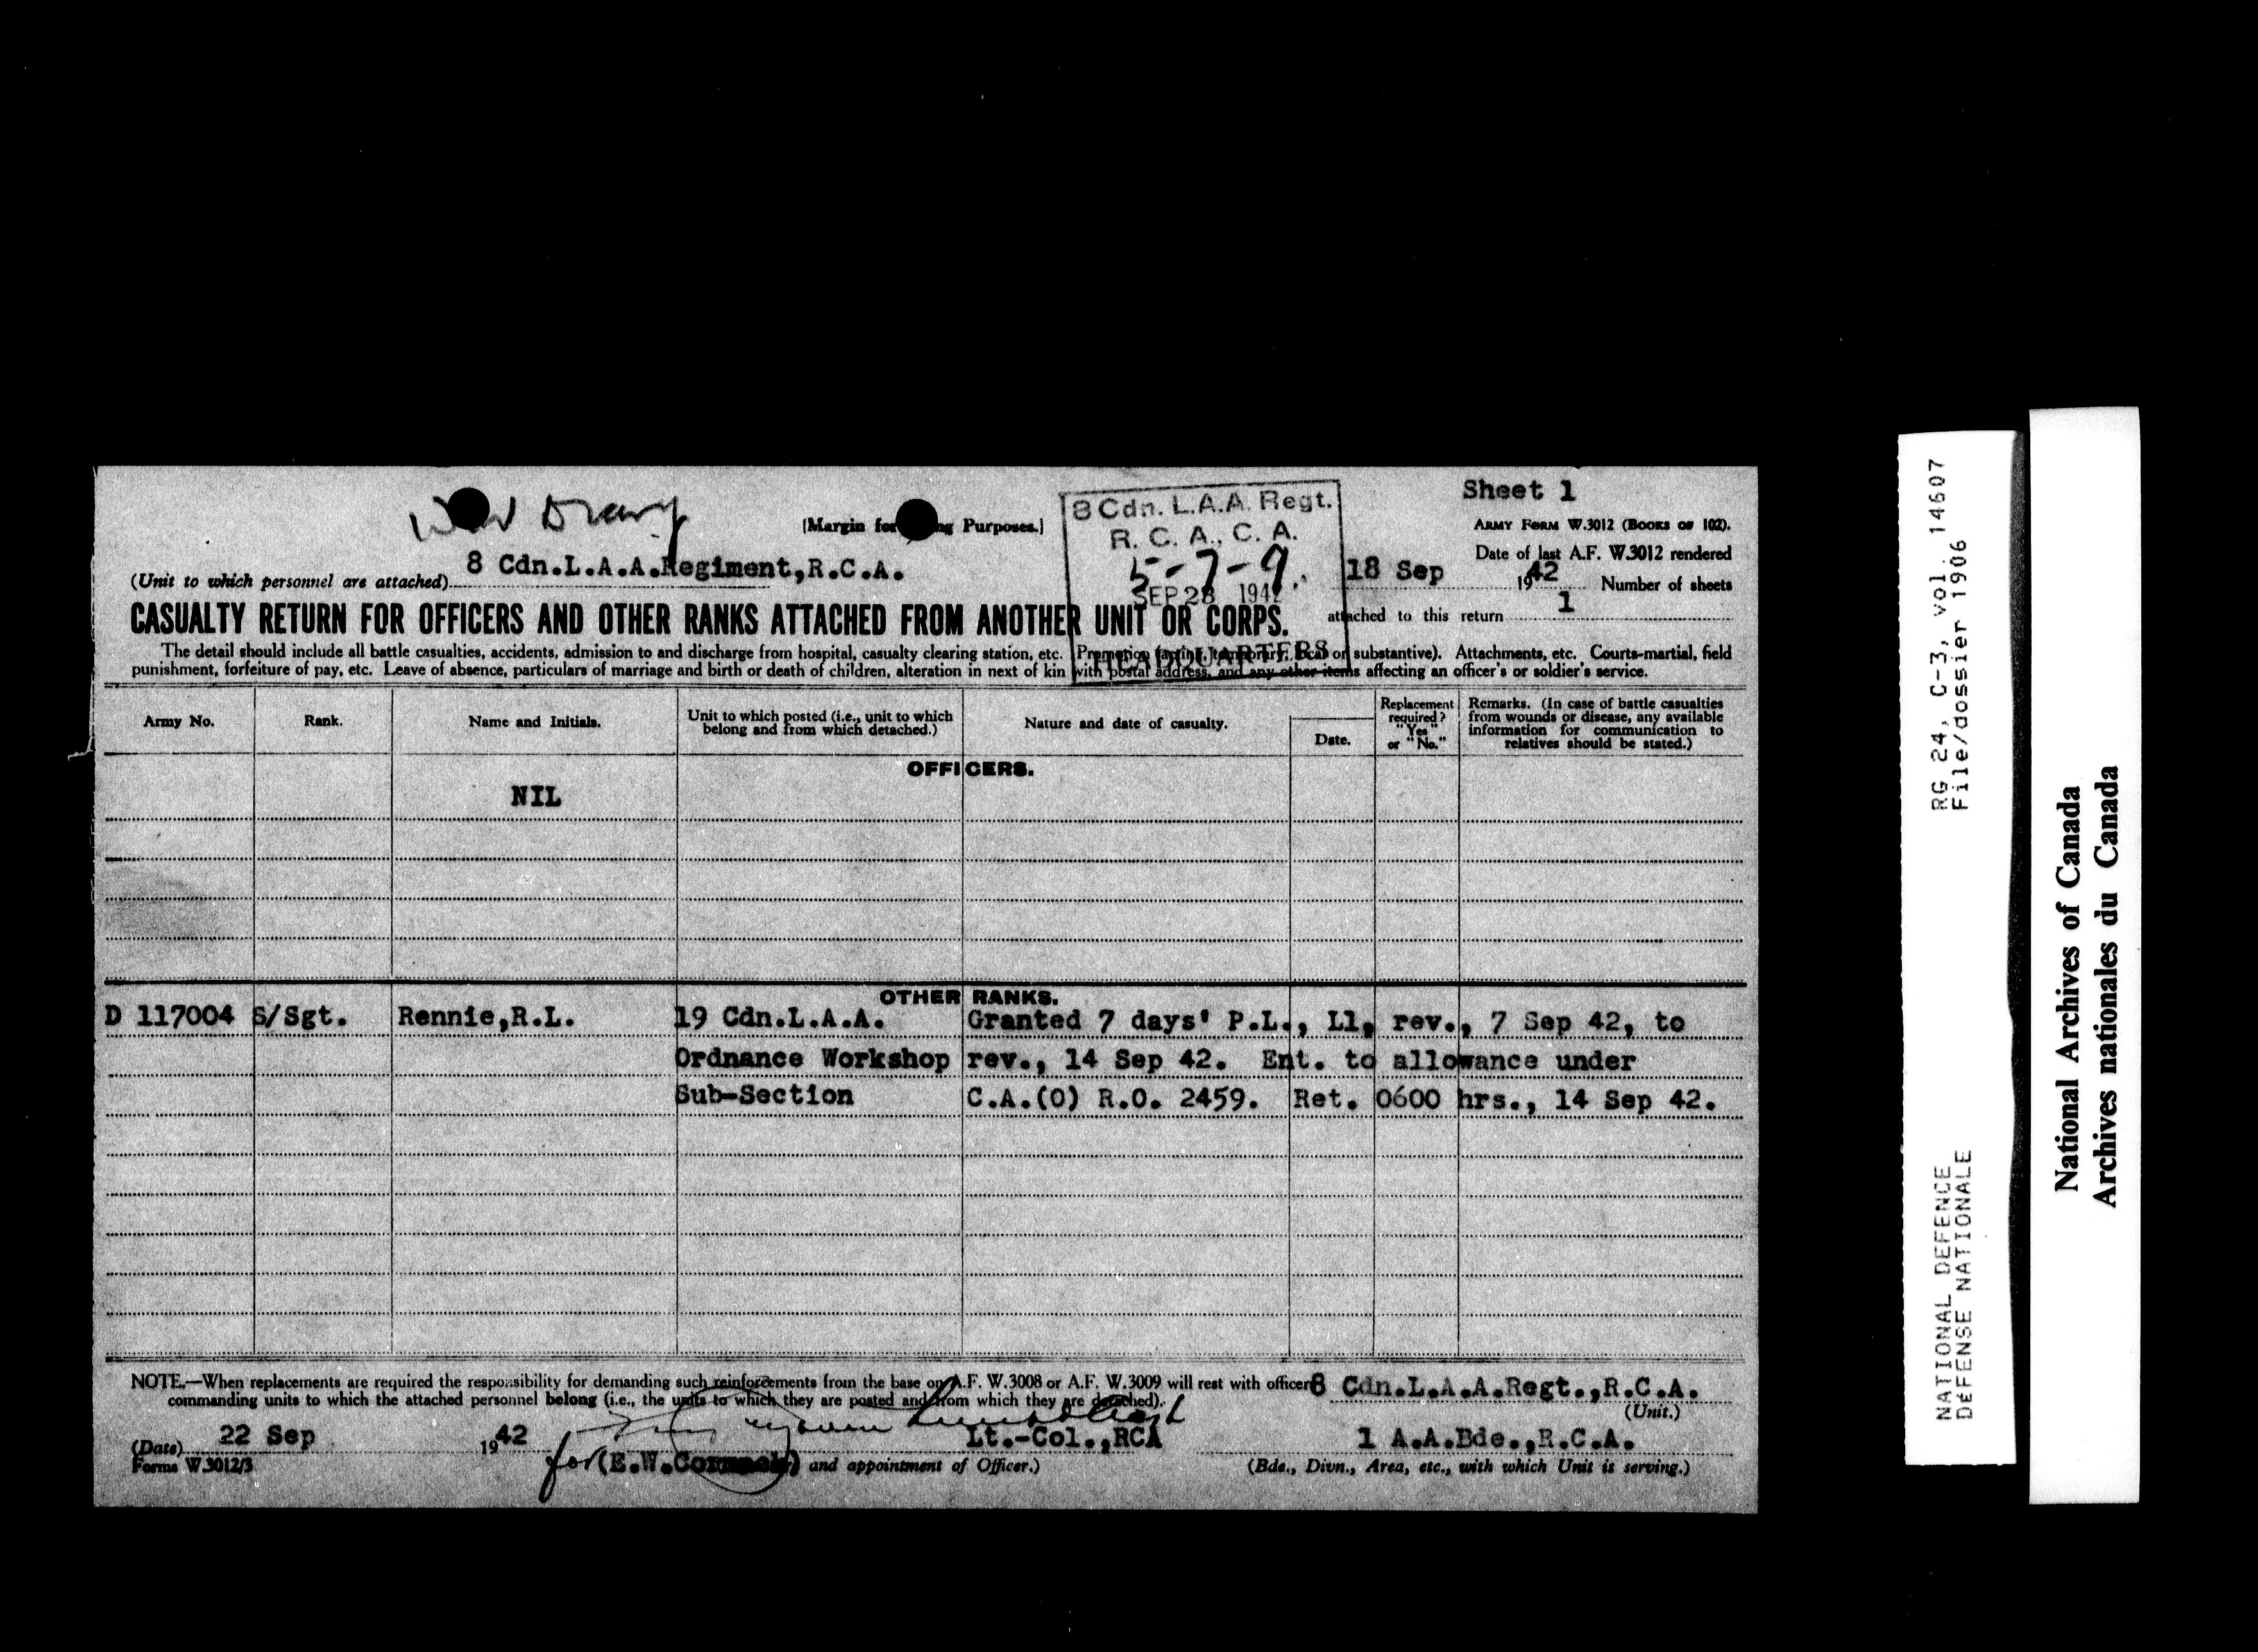 War Diary
[Margin for Purposes.]
8 Cdn. L.A.A. Regt.
R. C. A., C. A.
5-7-9
SEP 28 194
HEADQUARTERS
Sheet 1
ARMY FORM W.3012 (BOOKS OF 102).
Date of last A.F. W.3012 rendered
18 Sep 1942 Number of sheets
attached to this return 1
(Unit to which personnel are attached) 8 Cdn.L.A.A.Regiment,R.C.A.
CASUALTY RETURN FOR OFFICERS AND OTHER RANKS ATTACHED FROM ANOTHER UNIT OR CORPS.
The detail should include all battle casualties, accidents, admission to and discharge from hospital, casualty clearing station, etc. Promotion (acting, temporary, local or substantive). Attachments, etc. Courts-martial, field
punishment, forfeiture of pay, etc. Leave of absence, particulars of marriage and birth or death of children, alteration in next of kin with postal address, and any other items affecting an officer's or soldier's service.
Army No. Rank. Name and Initials. Unit to which posted (i.e., unit to which belong and from which detached.) Nature and date of casualty. Date. Replacement required? "Yes" or "No." Remarks. (In case of battle casualties from wounds or disease, any available information for communication to relatives should be stated.)
OFFICERS.
NIL
OTHER RANKS.
D 117004 S/Sgt. Rennie,R.L. 19 Cdn.L.A.A. Granted 7 days' P.L., L1, rev., 7 Sep 42, to
Ordnance Workshop rev., 14 Sep 42. Ent. to allowance under
Sub-Section C.A.(O) R.O. 2459. Ret. 0600 hrs., 14 Sep 42.
NOTE.—When replacements are required the responsibility for demanding such reinforcements from the base on A.F. W.3008 or A.F. W.3009 will rest with officers
commanding units to which the attached personnel belong (i.e., the units to which they are posted and from which they are detached).
8 Cdn.L.A.A.Regt.,R.C.A.
(Unit.)
(Date) 22 Sep 1942
Lt.-Col.,RCA
1 A.A.Bde.,R.C.A.
Forms W.3012/3
for (E.W.Cormack) and appointment of Officer.)
(Bde., Divn., Area, etc., with which Unit is serving.)
RG 24, C-3, vol. 14607
File/dossier 1906
NATIONAL DEFENCE
DÉFENSE NATIONALE
National Archives of Canada
Archives nationales du Canada